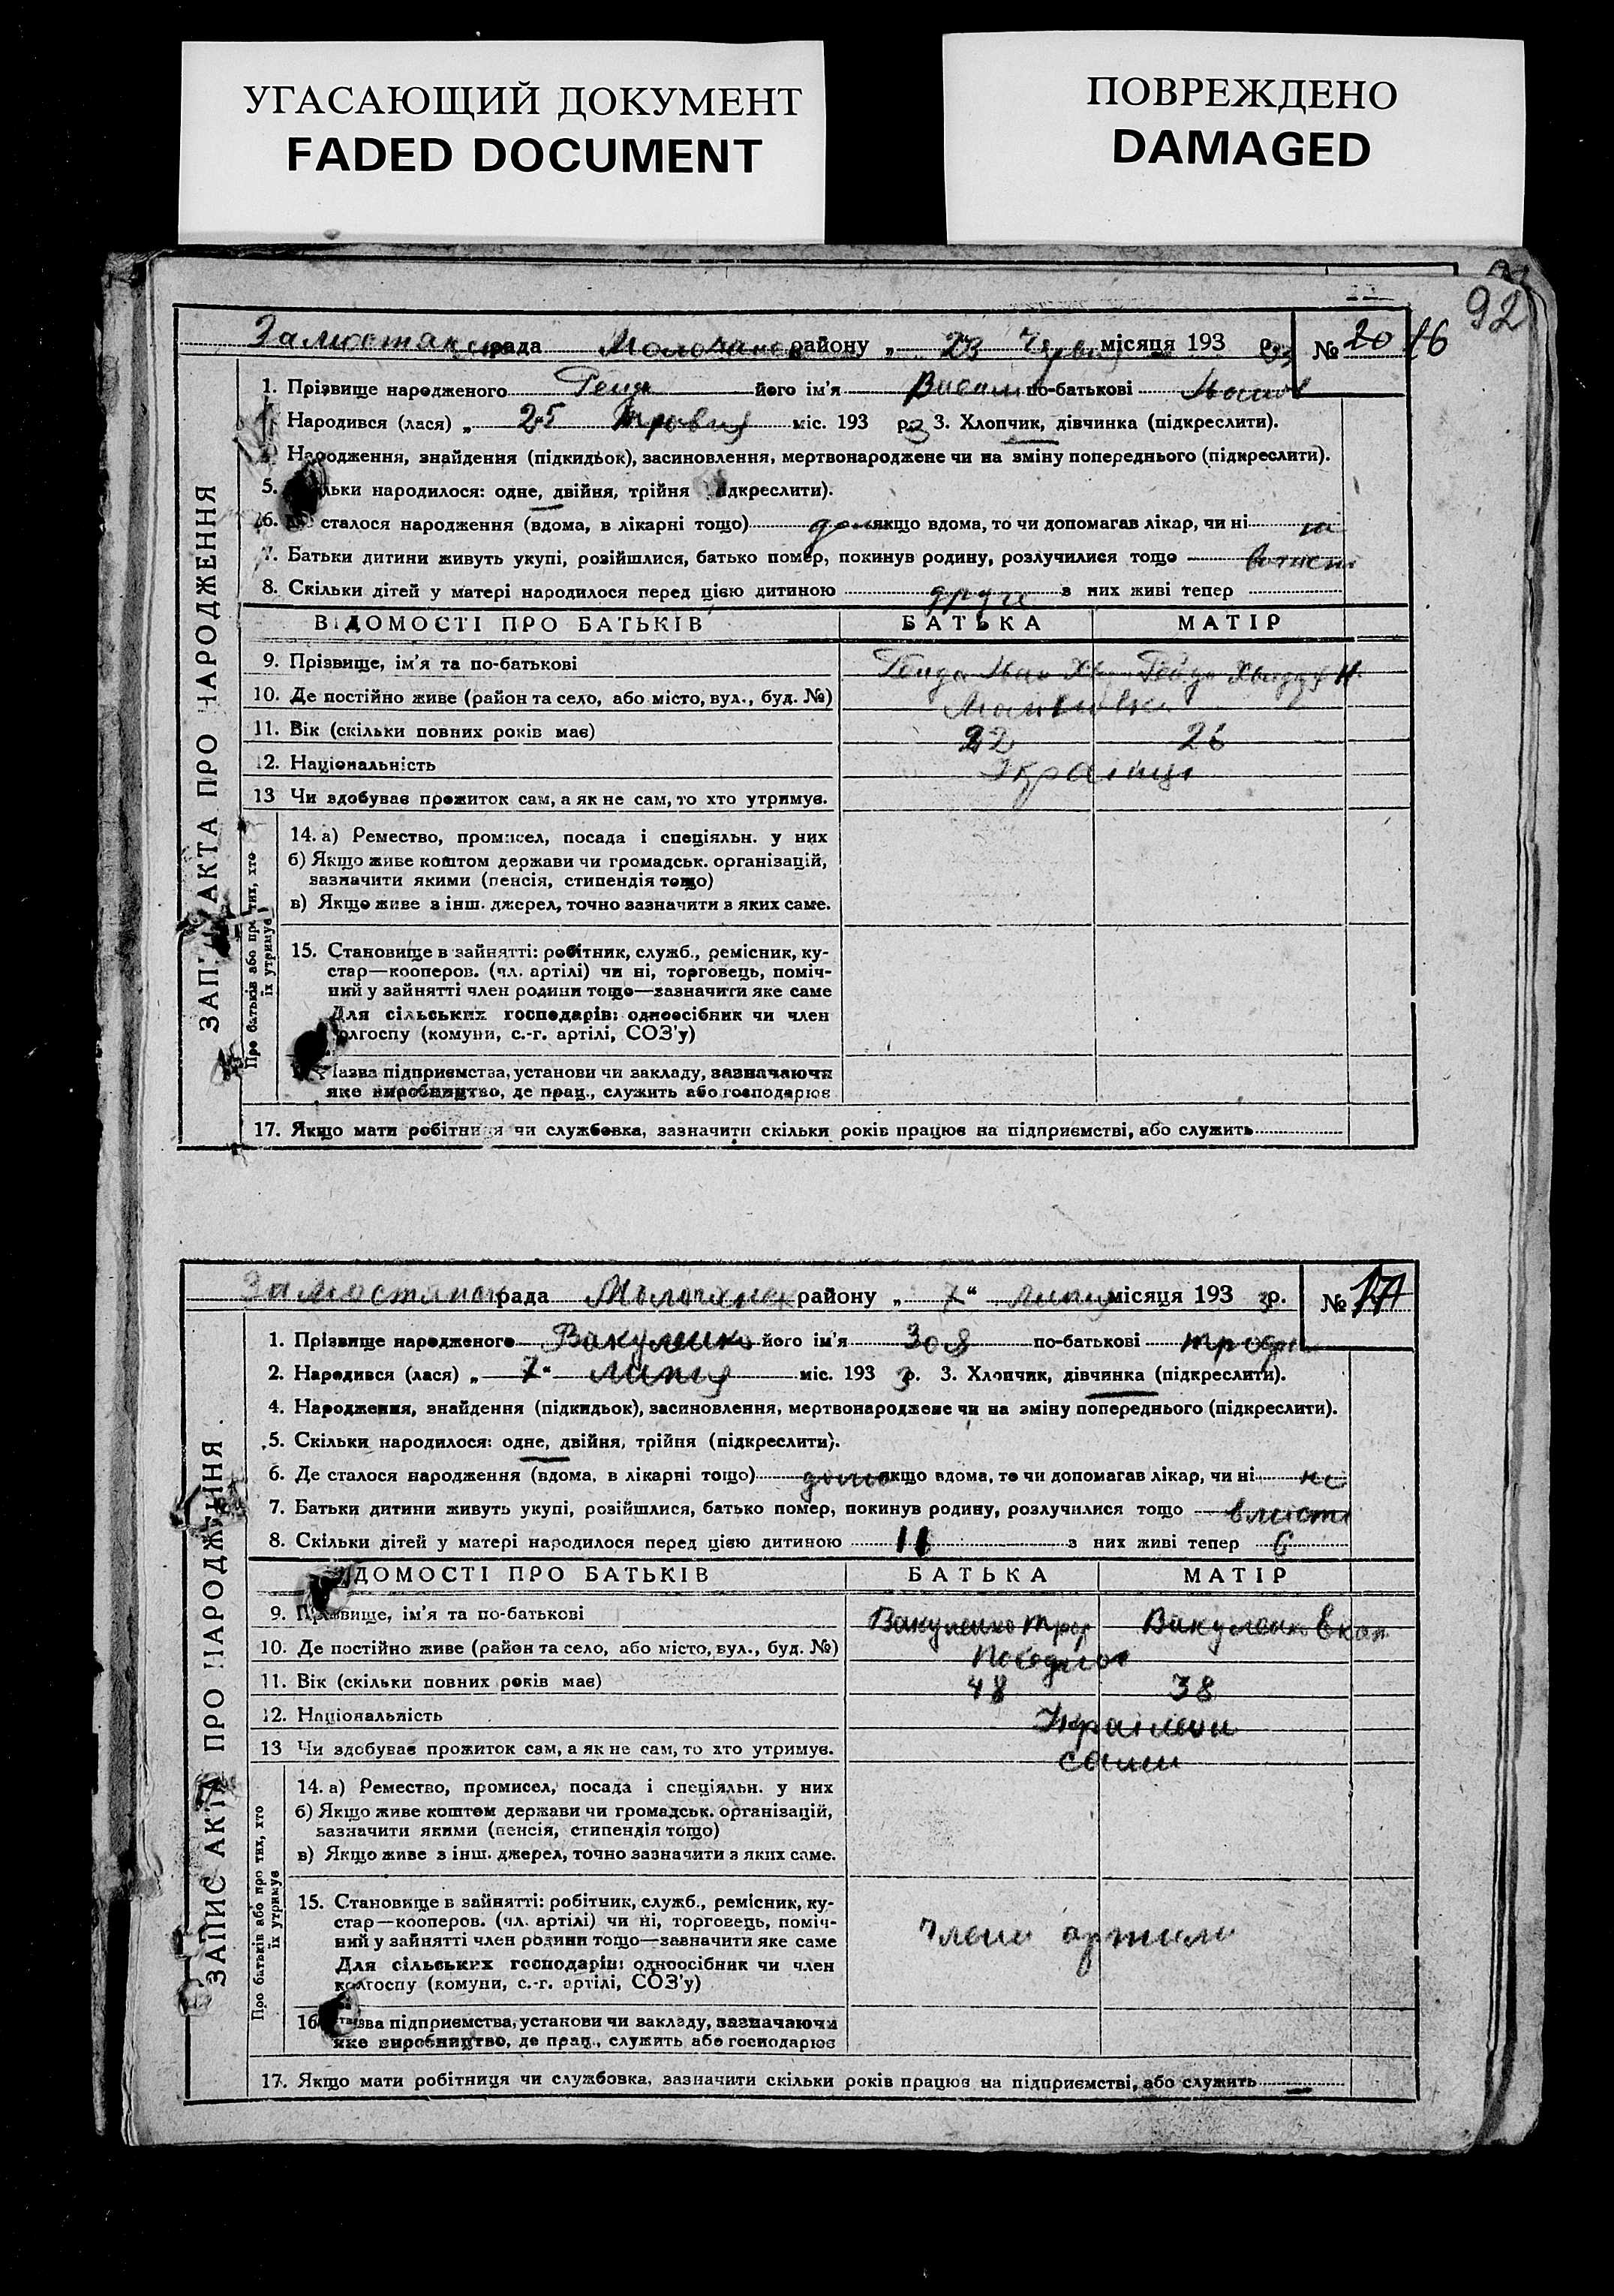 УГАСАЮЩИЙ ДОКУМЕНТ
FADED DOCUMENT
ПОВРЕЖДЕНО
DAMAGED
92
рада района району „ 23 місяця 193 р. № 20 16
ЗАПИС АКТА ПРО НАРОДЖЕННЯ
1. Прізвище народженого його ім'я по-батькові
Народився (лася) „ 25 травня міс. 193 3 р. 3. Хлопчик, дівчинка (підкреслити).
Народження, знайдення (підкидьок), засиновлення, мертвонароджене чи на зміну попереднього (підкреслити).
5. народилося: одне, двійня, трійня
6. сталося народження (вдома, в лікарні тощо) якщо вдома, то чи допомагав лікар, чи ні
7. Батьки дитини живуть укупі, розійшлися, батько помер, покинув родину, розлучилися тощо
8. Скільки дітей у матері народилося перед цією дитиною друге з них живі тепер
ВІДОМОСТІ ПРО БАТЬКІВ БАТЬКА МАТІР
9. Прізвище, ім'я та по-батькові
10. Де постійно живе (район та село, або місто, вул., буд. №)
11. Вік (скільки повних років має) 22 26
12. Національність Українці
13 Чи здобуває прожиток сам, а як не сам, то хто утримує.
Про батьків або про тих, хто
їх утримує
14. а) Ремество, промисел, посада і спеціяльн. у них
б) Якщо живе коштом держави чи громадськ. організацій,
зазначити якими (пенсія, стипендія тощо)
в) Якщо живе з інш. джерел, точно зазначити з яких саме.
15. Становище в зайнятті: робітник, служб., ремісник, ку-
стар—кооперов. (чл. артілі) чи ні, торговець, поміч-
ний у зайнятті член родини тощо—зазначити яке саме
Для сільських господарів: одноосібник чи член
колгоспу (комуни, с.-г. артілі, СОЗ'у)
Назва підприємства, установи чи закладу, зазначаючи
яке виробництво, де прац., служить або господарює
17. Якщо мати робітниця чи службовка, зазначити скільки років працює на підприємстві, або служить
рада району „ 7 “ липня місяця 193 3 р. № 17
ЗАПИС АКТА ПРО НАРОДЖЕННЯ
1. Прізвище народженого Вакуленко його ім'я Зоя по-батькові
2. Народився (лася) „ 7 “ липня міс. 193 3 р. 3. Хлопчик, дівчинка (підкреслити).
4. Народження, знайдення (підкидьок), засиновлення, мертвонароджене чи на зміну попереднього (підкреслити).
5. Скільки народилося: одне, двійня, трійня (підкреслити).
6. Де сталося народження (вдома, в лікарні тощо) дома якщо вдома, то чи допомагав лікар, чи ні ні
7. Батьки дитини живуть укупі, розійшлися, батько помер, покинув родину, розлучилися тощо
8. Скільки дітей у матері народилося перед цією дитиною 11 з них живі тепер 6
ВІДОМОСТІ ПРО БАТЬКІВ БАТЬКА МАТІР
9. Прізвище, ім'я та по-батькові Вакуленко Вакуленко
10. Де постійно живе (район та село, або місто, вул., буд. №)
11. Вік (скільки повних років має) 48 38
12. Національність
13 Чи здобуває прожиток сам, а як не сам, то хто утримує. сами
Про батьків або про тих, хто
їх утримує
14. а) Ремество, промисел, посада і спеціяльн. у них
б) Якщо живе коштом держави чи громадськ. організацій,
зазначити якими (пенсія, стипендія тощо)
в) Якщо живе з інш. джерел, точно зазначити з яких саме.
15. Становище в зайнятті: робітник, служб., ремісник, ку-
стар—кооперов. (чл. артілі) чи ні, торговець, поміч-
ний у зайнятті член родини тощо—зазначити яке саме
Для сільських господарів: одноосібник чи член
колгоспу (комуни, с.-г. артілі, СОЗ'у)
члени артили
16. Назва підприємства, установи чи закладу, зазначаючи
яке виробництво, де прац., служить або господарює
17. Якщо мати робітниця чи службовка, зазначити скільки років працює на підприємстві, або служить —